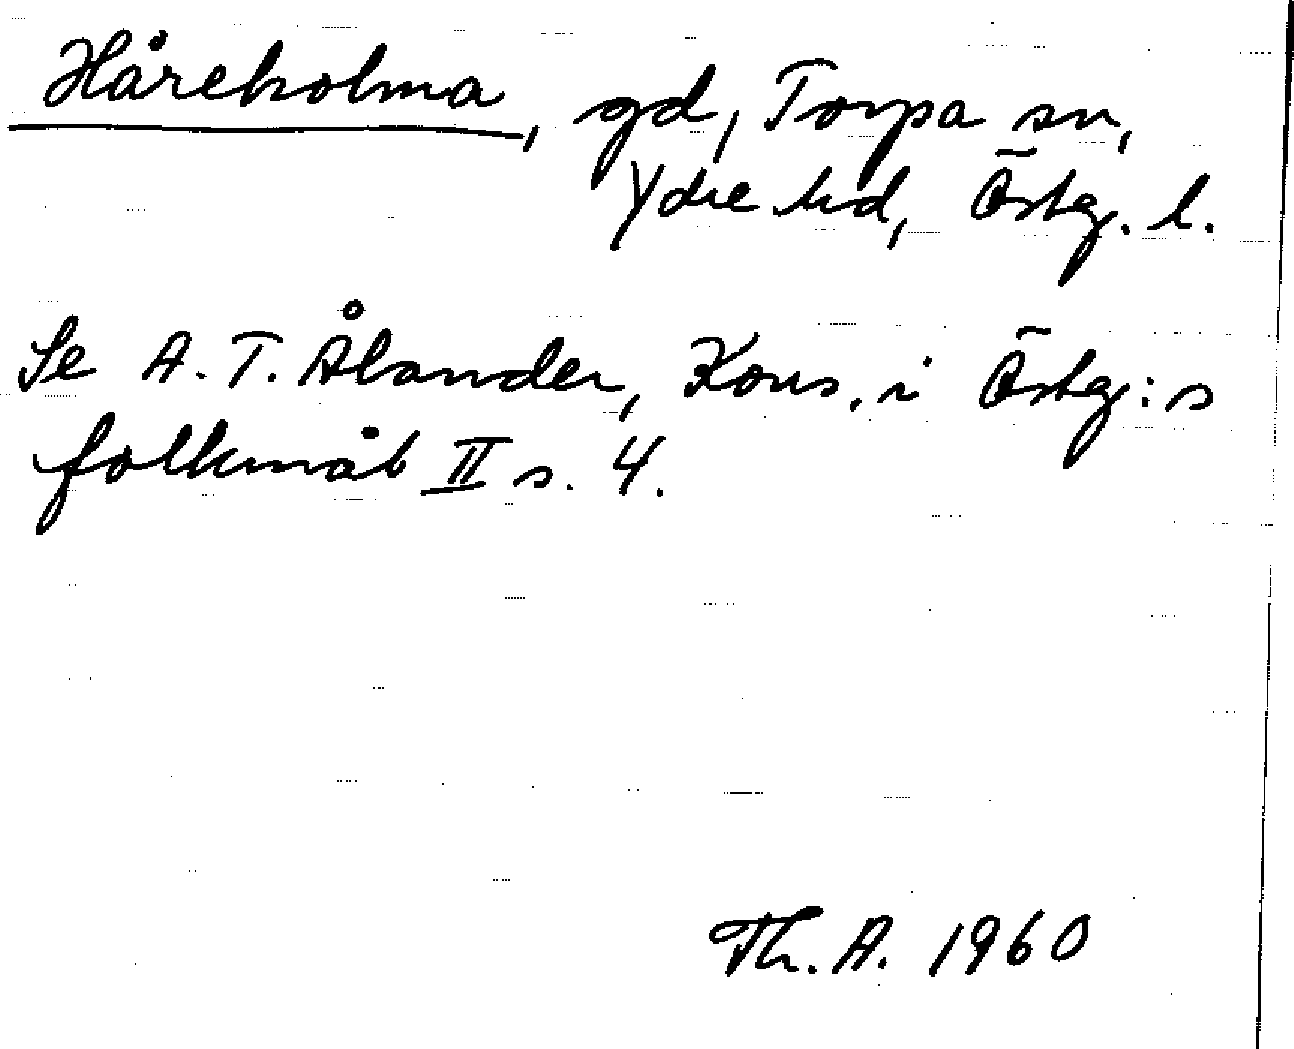 Håreholma, gd, Torpa sn,
Ydre hd, Östg. l.
Se A. T. Ålander, Kons. i Östg:s
folkmål II s. 4.
Th. A. 1960